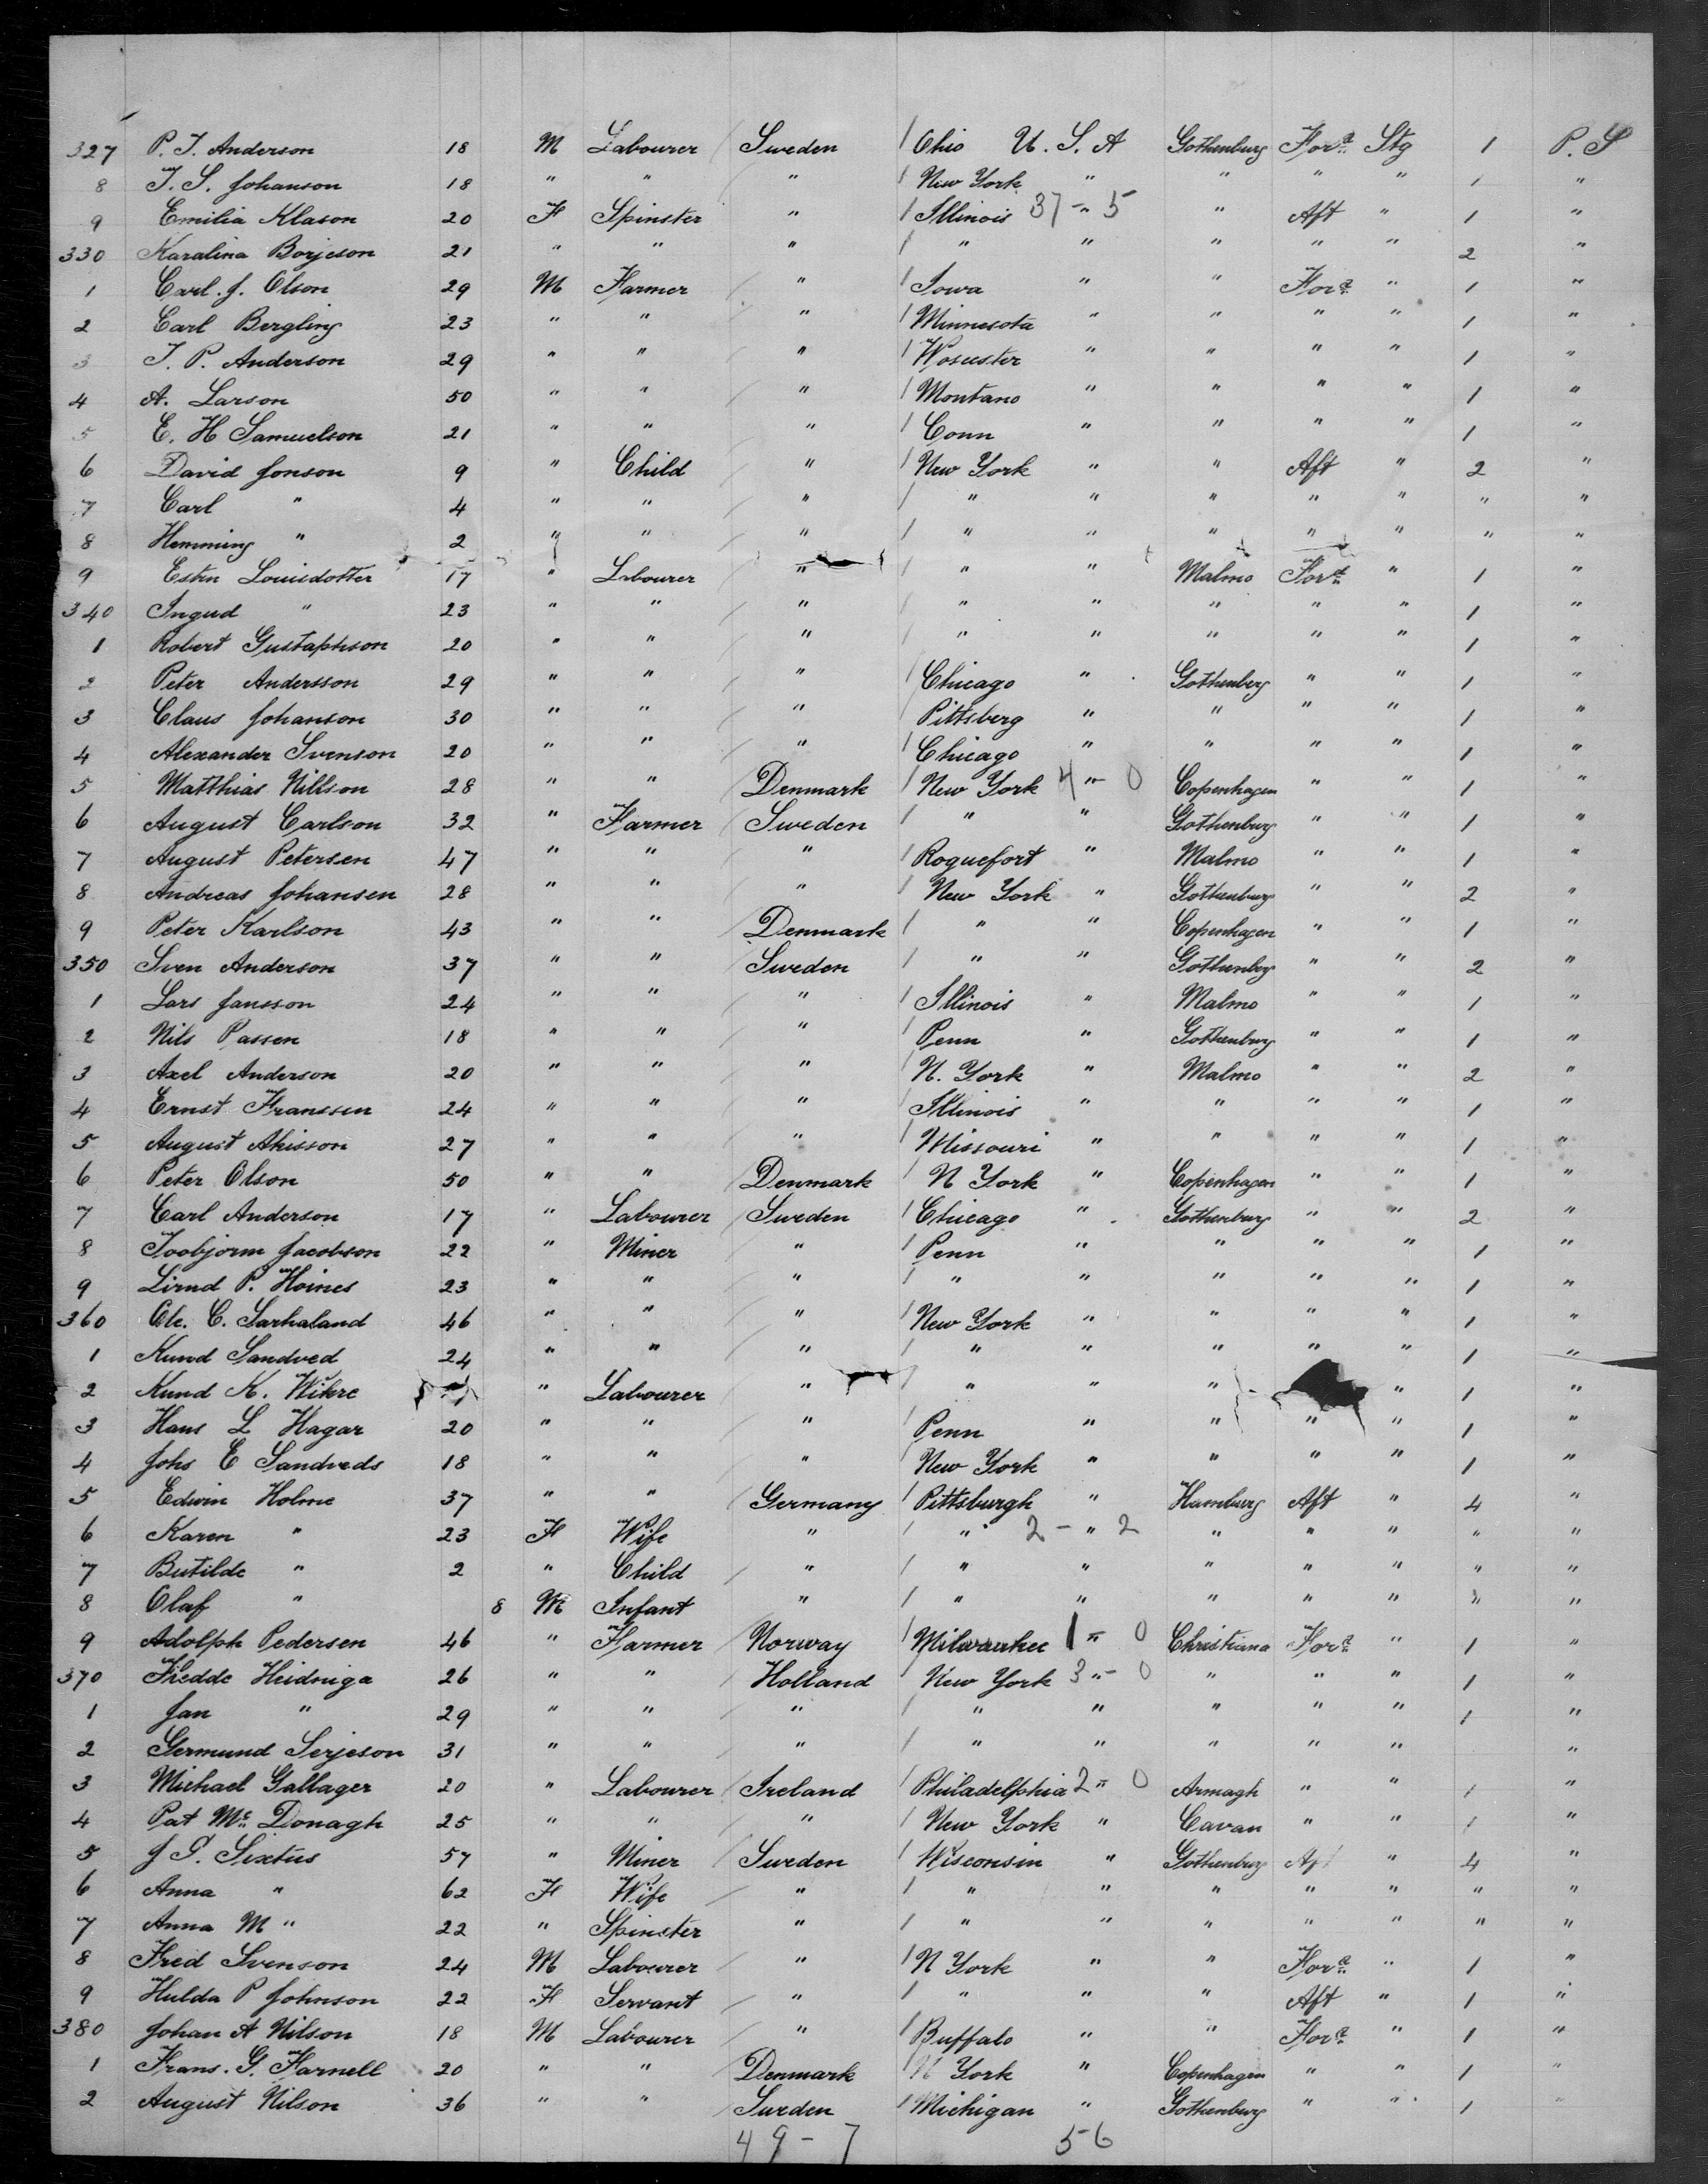 327 P. J. Anderson 18 M Labourer Sweden Ohio U. S. A Gothenburg Ford Stg 1 P. S
8 J. S. Johanson 18 " " " New York " " " " 1 "
9 Emilia Klason 20 F Spinster " Illinois 37 - " 5 " Aft " 1 "
330 Karalina Borjeson 21 " " " " " " " " 2 "
1 Carl. J. Olson 29 M Farmer " Iowa " " Ford " 1 "
2 Carl Bergling 23 " " " Minnesota " " " " 1 "
3 J. P. Anderson 29 " " " Wosester " " " " 1 "
4 A. Larson 50 " " " Montano " " " " 1 "
5 E. H Samuelson 21 " " " Conn " " " " 1 "
6 David Jonson 9 " Child " New York " " Aft " 2 "
7 Carl " 4 " " " " " " " " " "
8 Hemming " 2 " " " " " " " " " "
9 Estin Louisdotter 17 " Labourer " " " Malmo Ford " 1 "
340 Ingud " 23 " " " " " " " " 1 "
1 Robert Gustaphson 20 " " " " " " " " 1 "
2 Peter Andersson 29 " " " Chicago " Gothenberg " " 1 "
3 Claus Johanson 30 " " " Pittsberg " " " " 1 "
4 Alexander Svenson 20 " " " Chicago " " " " 1 "
5 Matthias Nillson 28 " " Denmark New York 4 " - 0 Copenhagen " " 1 "
6 August Carlson 32 " Farmer Sweden " " Gothenburg " " 1 "
7 August Petersen 47 " " " Roquefort " Malmo " " 1 "
8 Andreas Johansen 28 " " " New York " Gothenburg " " 2 "
9 Peter Karlson 43 " " Denmark " " Copenhagen " " 1 "
350 Sven Anderson 37 " " Sweden " " Gothenbeg " " 2 "
1 Lars Jansson 24 " " " Illinois " Malmo " " 1 "
2 Nils Passen 18 " " " Penn " Gothenburg " " 1 "
3 Axel Anderson 20 " " " N. York " Malmo " " 2 "
4 Ernst Franssen 24 " " " Illinois " " " " 1 "
5 August Akisson 27 " " " Missouri " " " " 1 "
6 Peter Olson 50 " " Denmark N York " Copenhagen " " 1 "
7 Carl Anderson 17 " Labourer Sweden Chicago " Gothenburg " " 2 "
8 Joobjorm Jacobson 22 " Miner " Penn " " " " 1 "
9 Lirnd P. Hoines 23 " " " " " " " " 1 "
360 Ole. C. Sarhaland 46 " " " New York " " " " 1 "
1 Kund Sandved 24 " " " " " " " " 1 "
2 Kund K. Wikre " Labourer " " " " " 1 "
3 Hans L Hagar 20 " " " Penn " " " " 1 "
4 Johs E Sandveds 18 " " " New York " " " " 1 "
5 Edwin Holme 37 " " Germany Pittsburgh " Hamburg Aft " 4 "
6 Karen " 23 F Wife " " 2 - " 2 " " " " "
7 Butilde " 2 " Child " " " " " " " "
8 Olaf " 8 M Infant " " " " " " " "
9 Adolph Pedersen 46 " Farmer Norway Milwaukee 1 " - 0 Christiana Ford " 1 "
370 Fredde Heidniga 26 " " Holland New York 3 " - 0 " " " 1 "
1 Jan " 29 " " " " " " " " 1 "
2 Germund Serjeson 31 " " " " " " " " "
3 Michael Gallager 20 " Labourer Ireland Philadelphia 2 " - 0 Armagh " " 1 "
4 Pat Mc Donagh 25 " " " New York " Cavan " " 1 "
5 J G. Sixtus 57 " Miner Sweden Wisconsin " Gothenburg Aft " 4 "
6 Anna " 62 F Wife " " " " " " " "
7 Anna M " 22 " Spinster " " " " " " " "
8 Fred Svenson 24 M Labourer " N York " " Ford " 1 "
9 Hulda P Johnson 22 F Servant " " " " Aft " 1 "
380 Johan A Nilson 18 M Labourer " Buffalo " " Ford " 1 "
1 Frans. G. Farnell 20 " " Denmark N York " Copenhagen " " 1 "
2 August Nilson 36 " " Sweden Michigan " Gothenburg " " 1 "
49 - 7 56